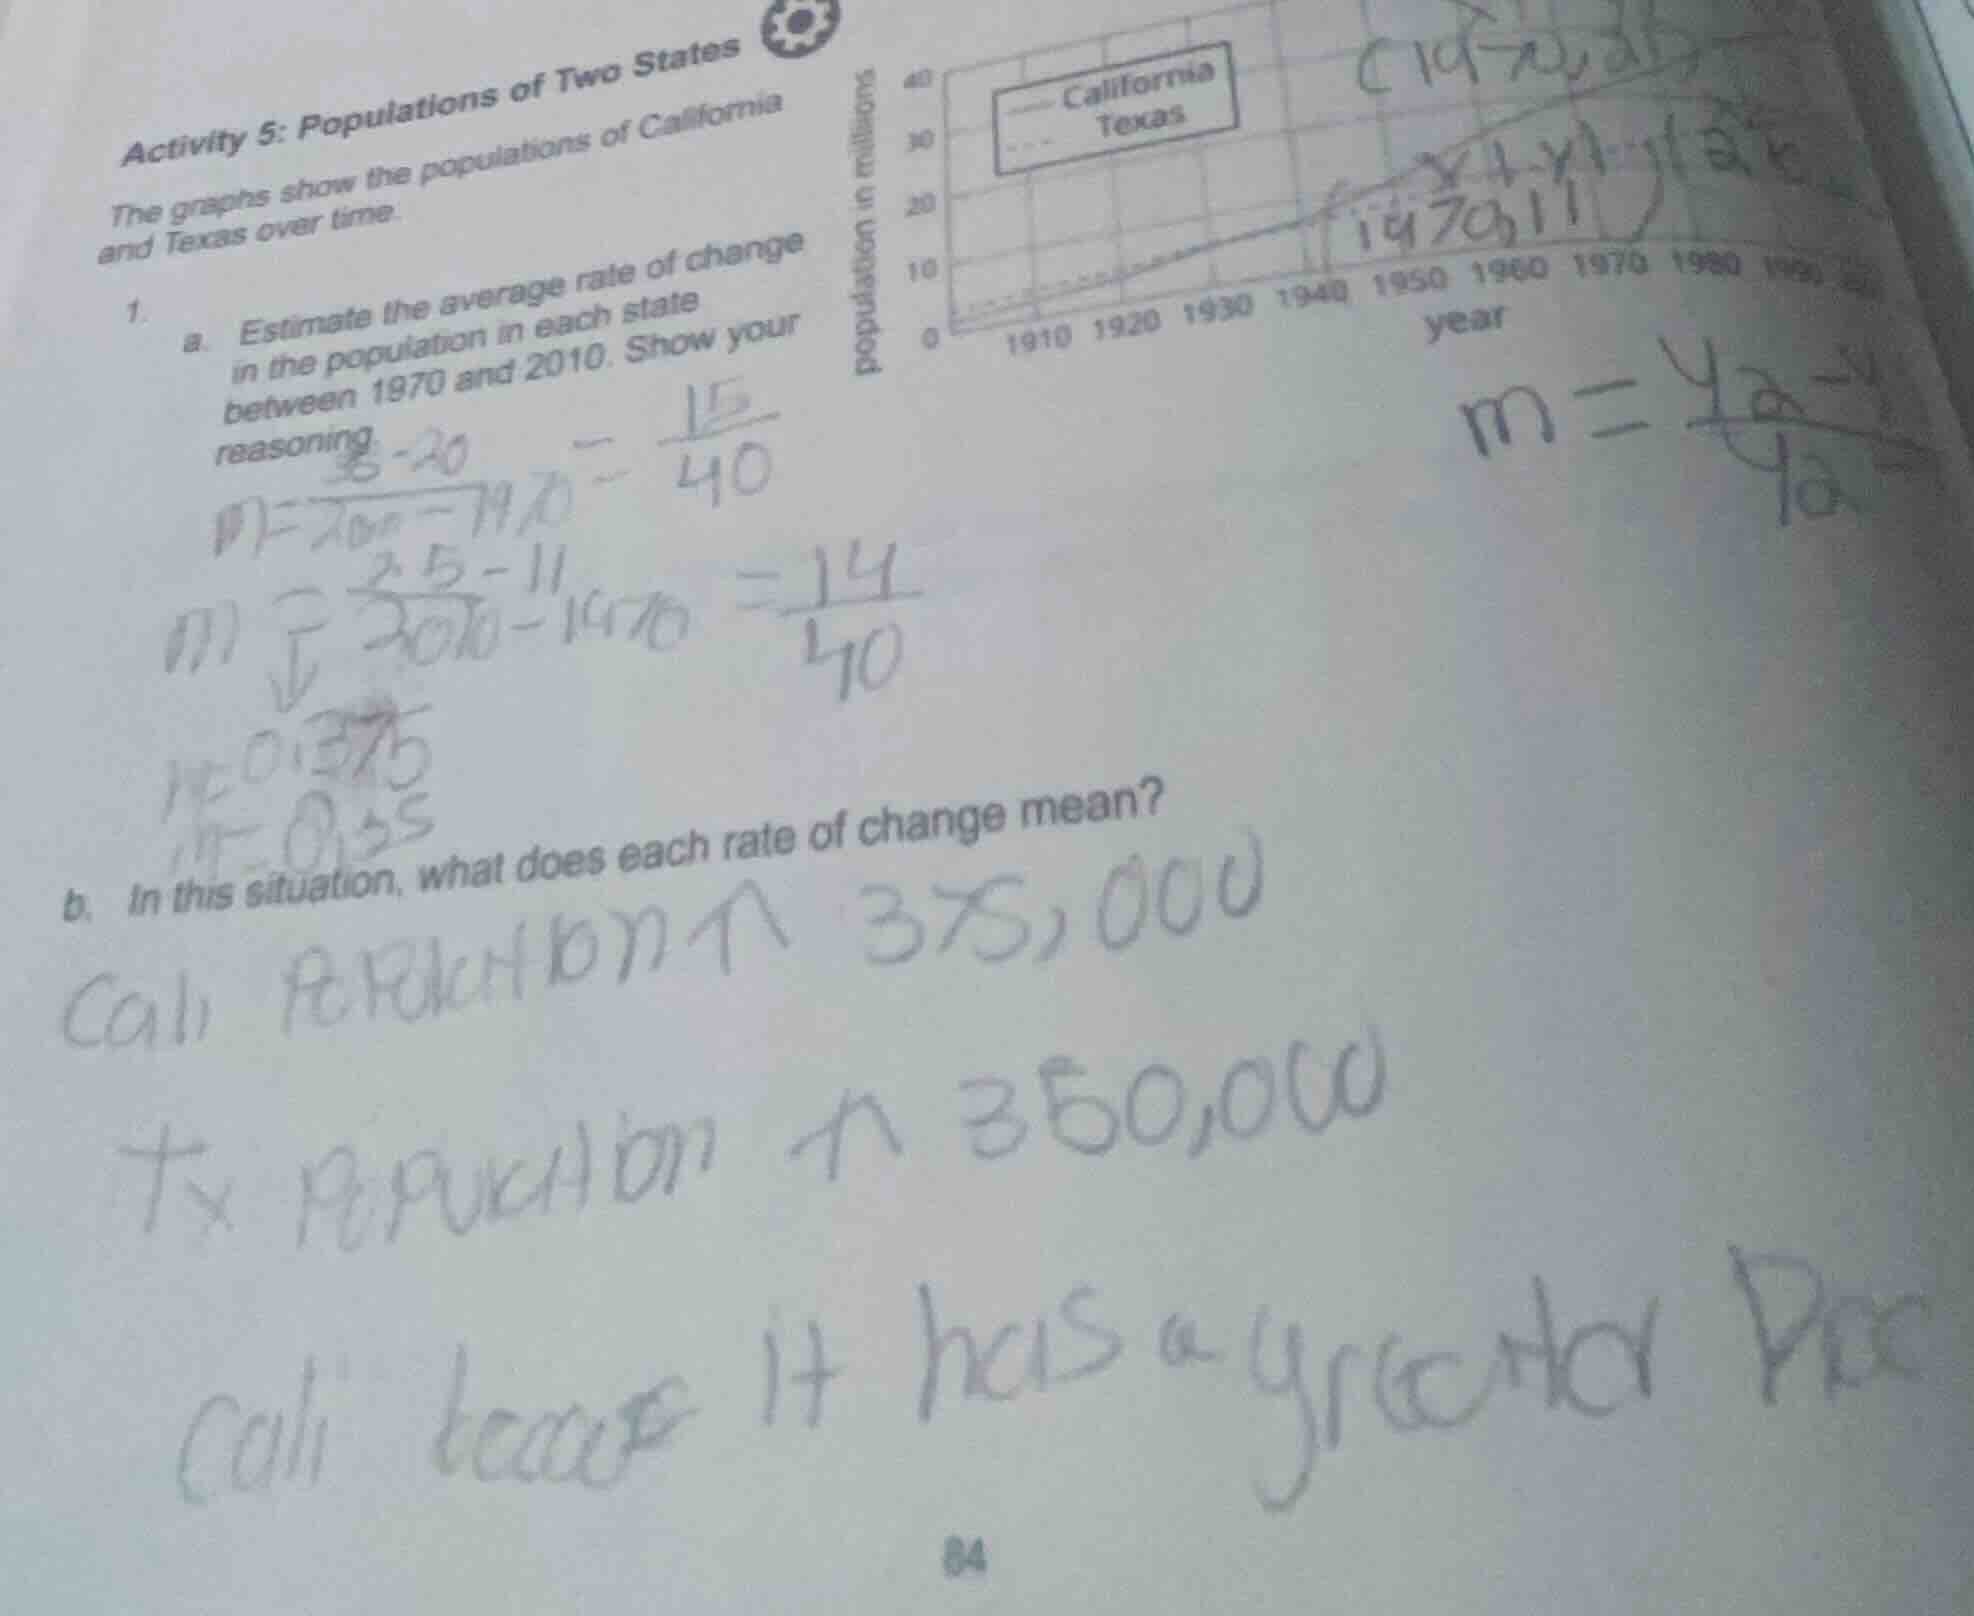 Activity 5: Populations of Two States
The graphs show the populations of California
and Texas over time.
1.
a. Estimate the average rate of change
in the population in each state
between 1970 and 2010. Show your
reasoning.
-20
m= -1970 = 15
40
m = 25-11
2010-1970 = 14
40
0.375
0.35
population in millions
40
30
20
10
0
California
Texas
1970,11
1910 1920 1930 1940 1950 1960 1970 1980 1990
year
m = y2-y
b. In this situation, what does each rate of change mean?
Cali ↑ 375,000
Tx ↑ 350,000
Cali it has a
84